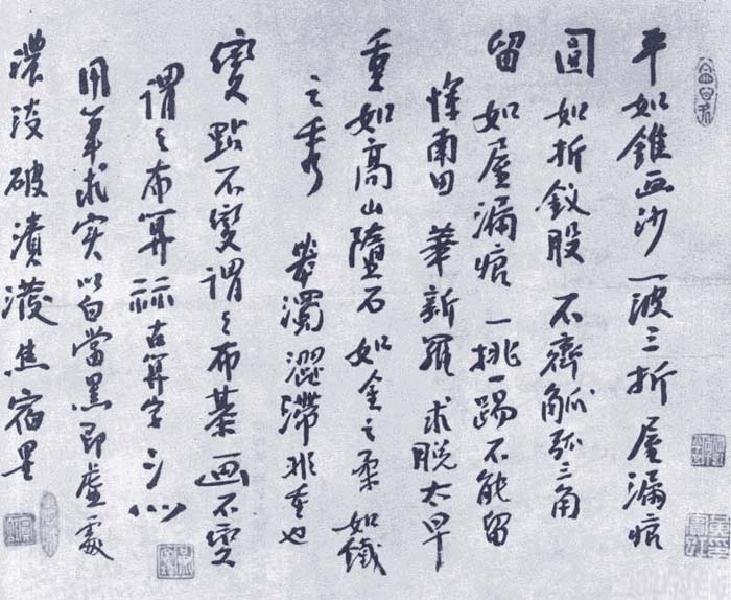 平如錐画沙一波三折屋漏痕
圓如折釵股不齊觚弧三角
留如屋漏痕一挑一踢不能留
惲南田華新羅求脱太早
重如高山墜石如金之柔如鐵
之秀濁澀滯非重也
變點不變謂之布棊画不變
謂之布算祘古算字
用筆求実以白當黑即虚處
濃淡破漬潑焦宿墨